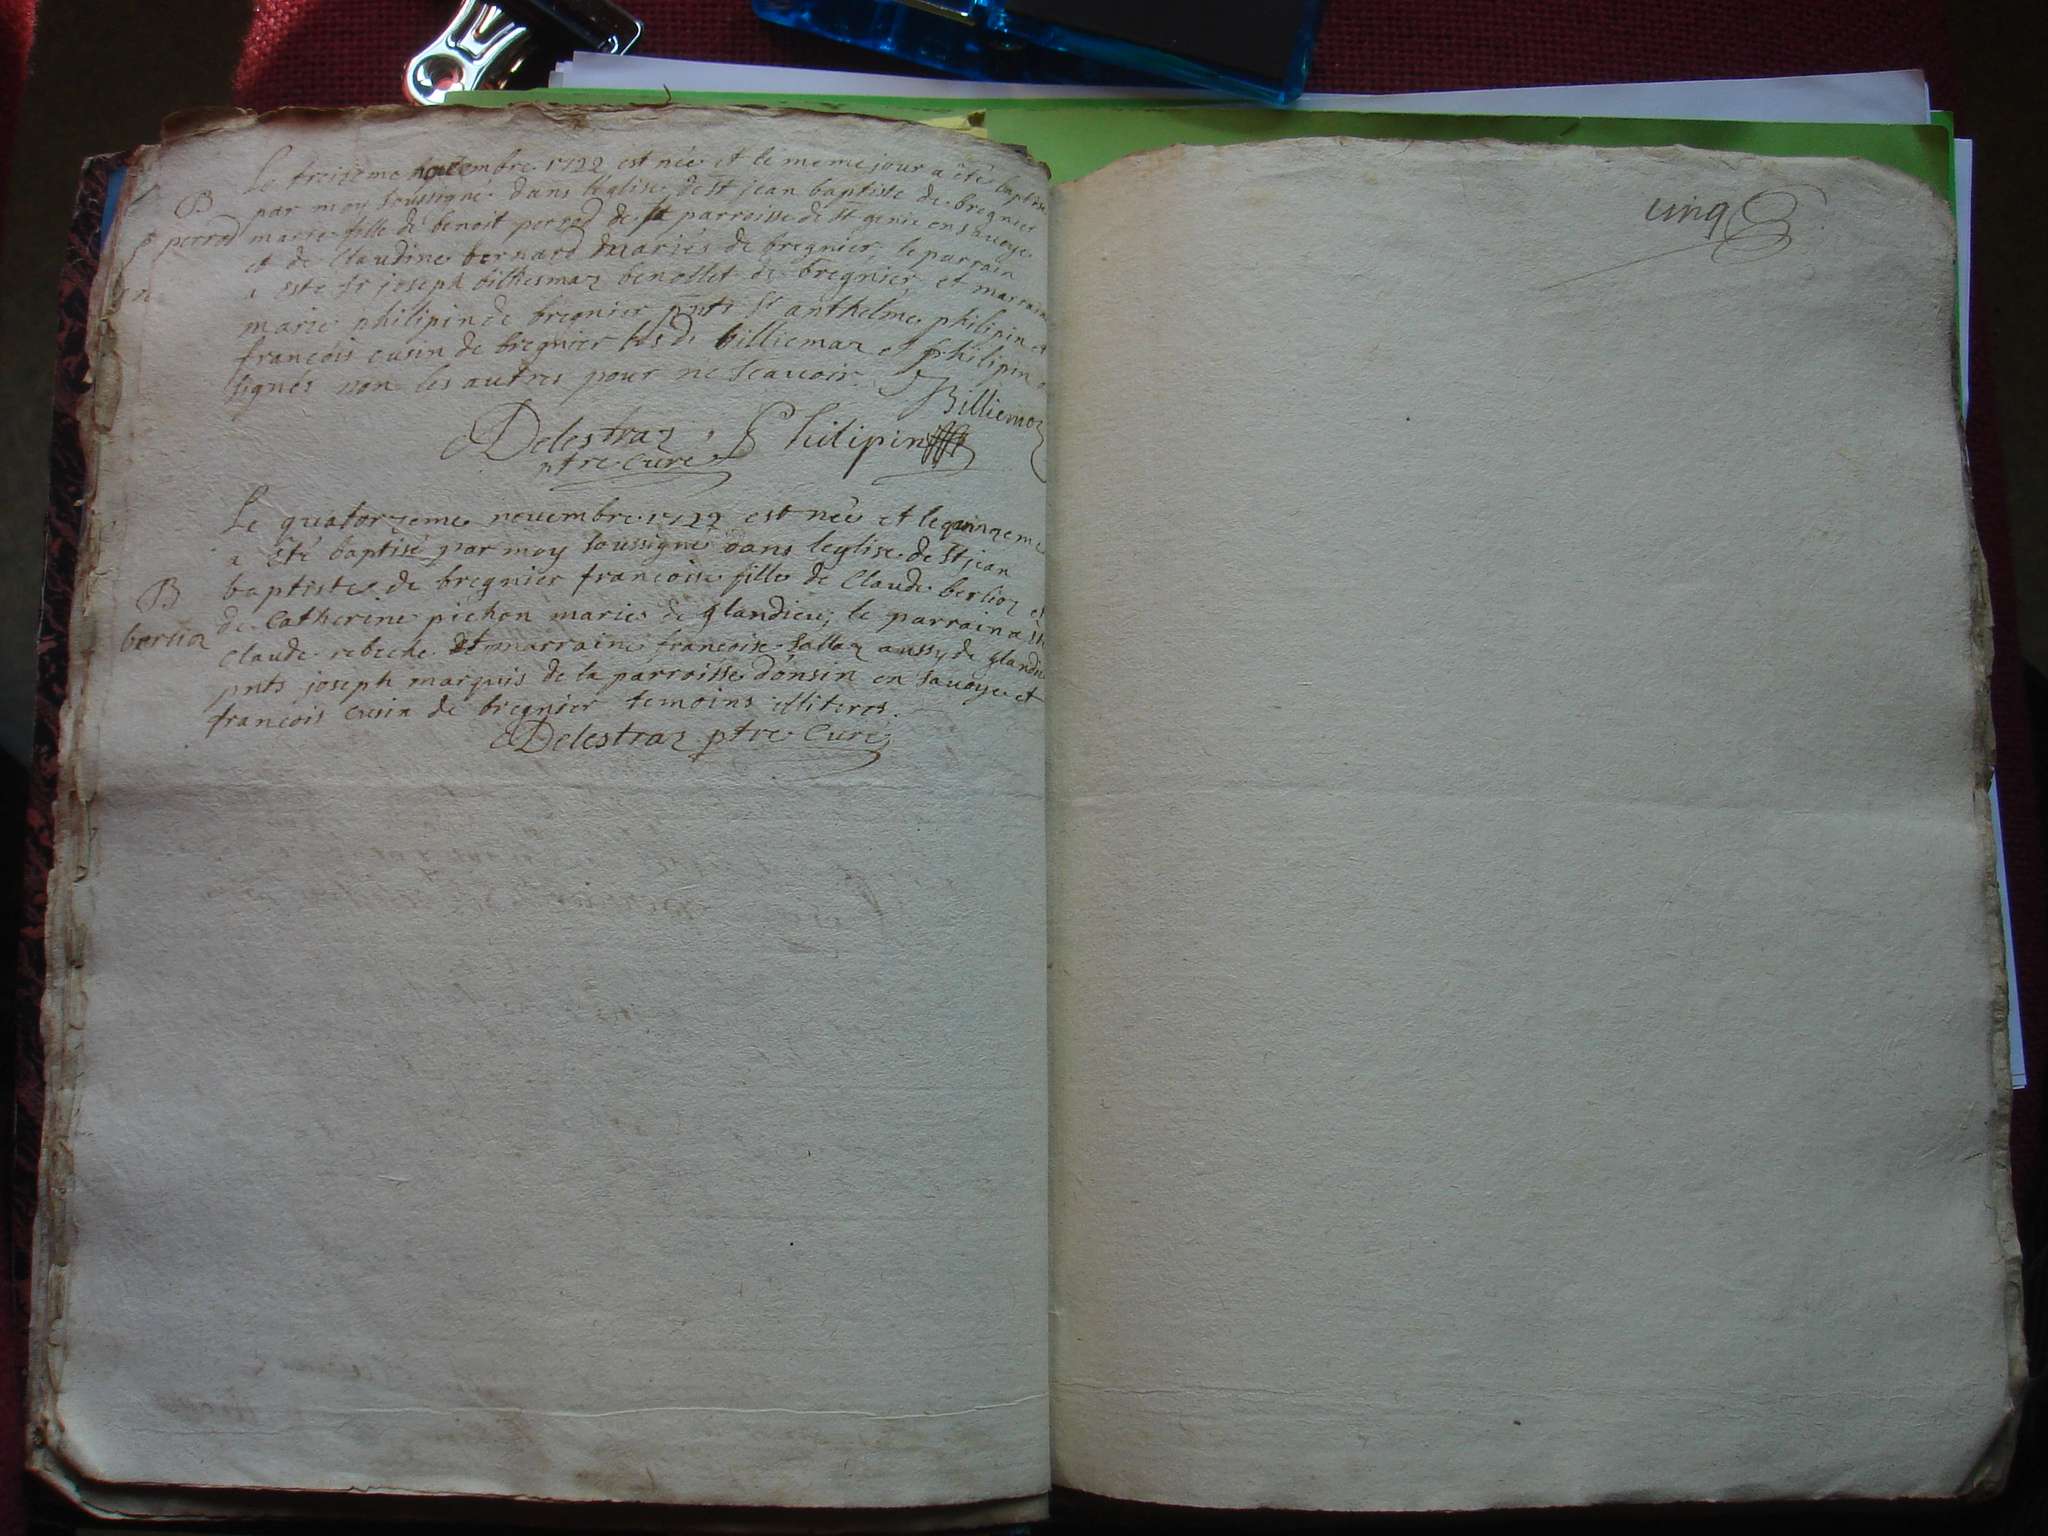 Le treizeme novembre 1722 est née et le meme jour a êté baptisé
B
par moy soussigné dans leglise de St jean baptiste de bregnier
perrod
marie fille de benoit perrod de parroisse de St genie en savoye
et de Claudine bernard mariés de bregnier, le parrain
a esté Sr joseph billiemaz benollet de bregnier, et marraine
marie philipin de bregnier pnts Sr anthelme philipin et
francois cusin de bregnier lesd billiemaz et philipin
signés non les autres pour ne scavoir. Billiemaz
Delestraz Philipin
ptre Curé
Le quatorzeme novembre 1722 est née et le quinzeme
a êté baptisé par moy soussigné dans leglise de St jean
baptiste de bregnier francoise fille de Claude berlioz et
B
de Catherine pichon mariés de glandieu; le parrain a
berlioz
Claude rebeche et marraine francoise sallaz aussy de glandieu
pnts joseph marquis de la parroisse d'onsin en savoye et
francois cusin de bregnier temoins illiteres.
Delestraz ptre Curé
cinq